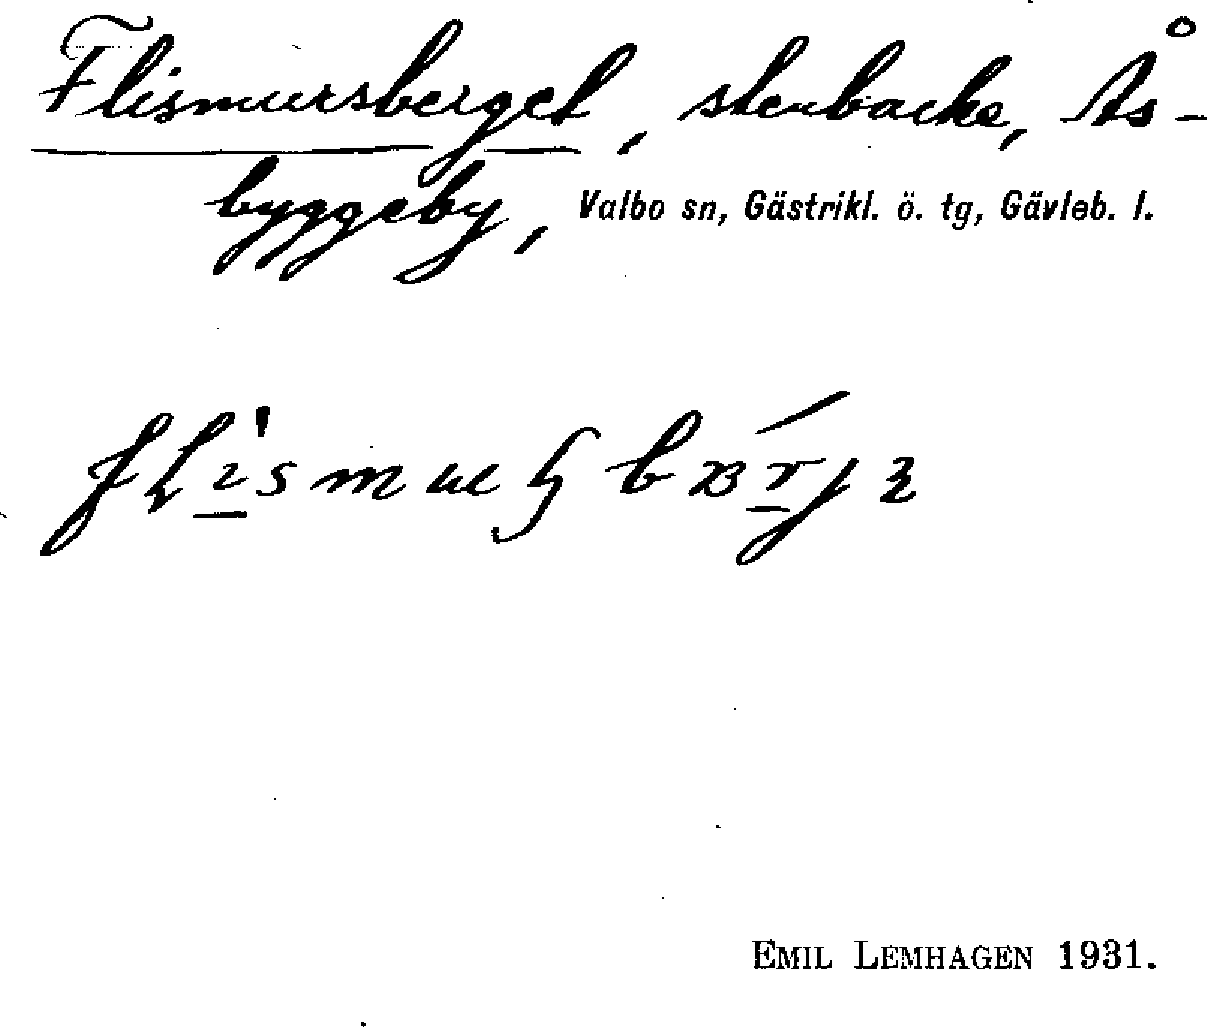 Flismursberget, stenbacke, Ås-
byggeby, Valbo sn, Gästrikl. ö. tg, Gävleb. l.
EMIL LEMHAGEN 1931.